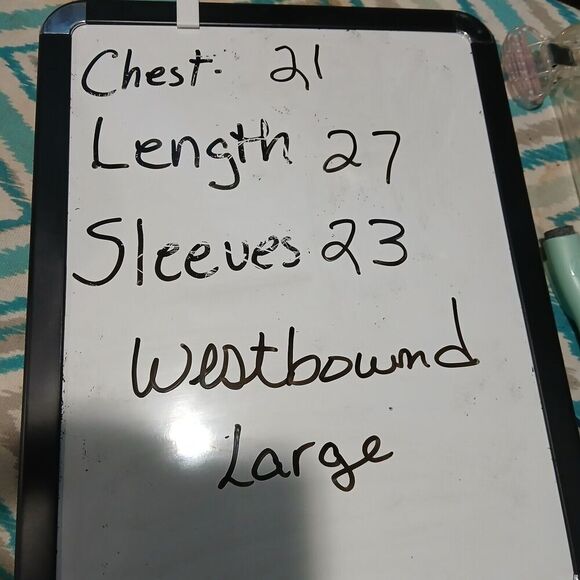 Chest- 21
Length 27
Sleeves 23
Westbound
Large